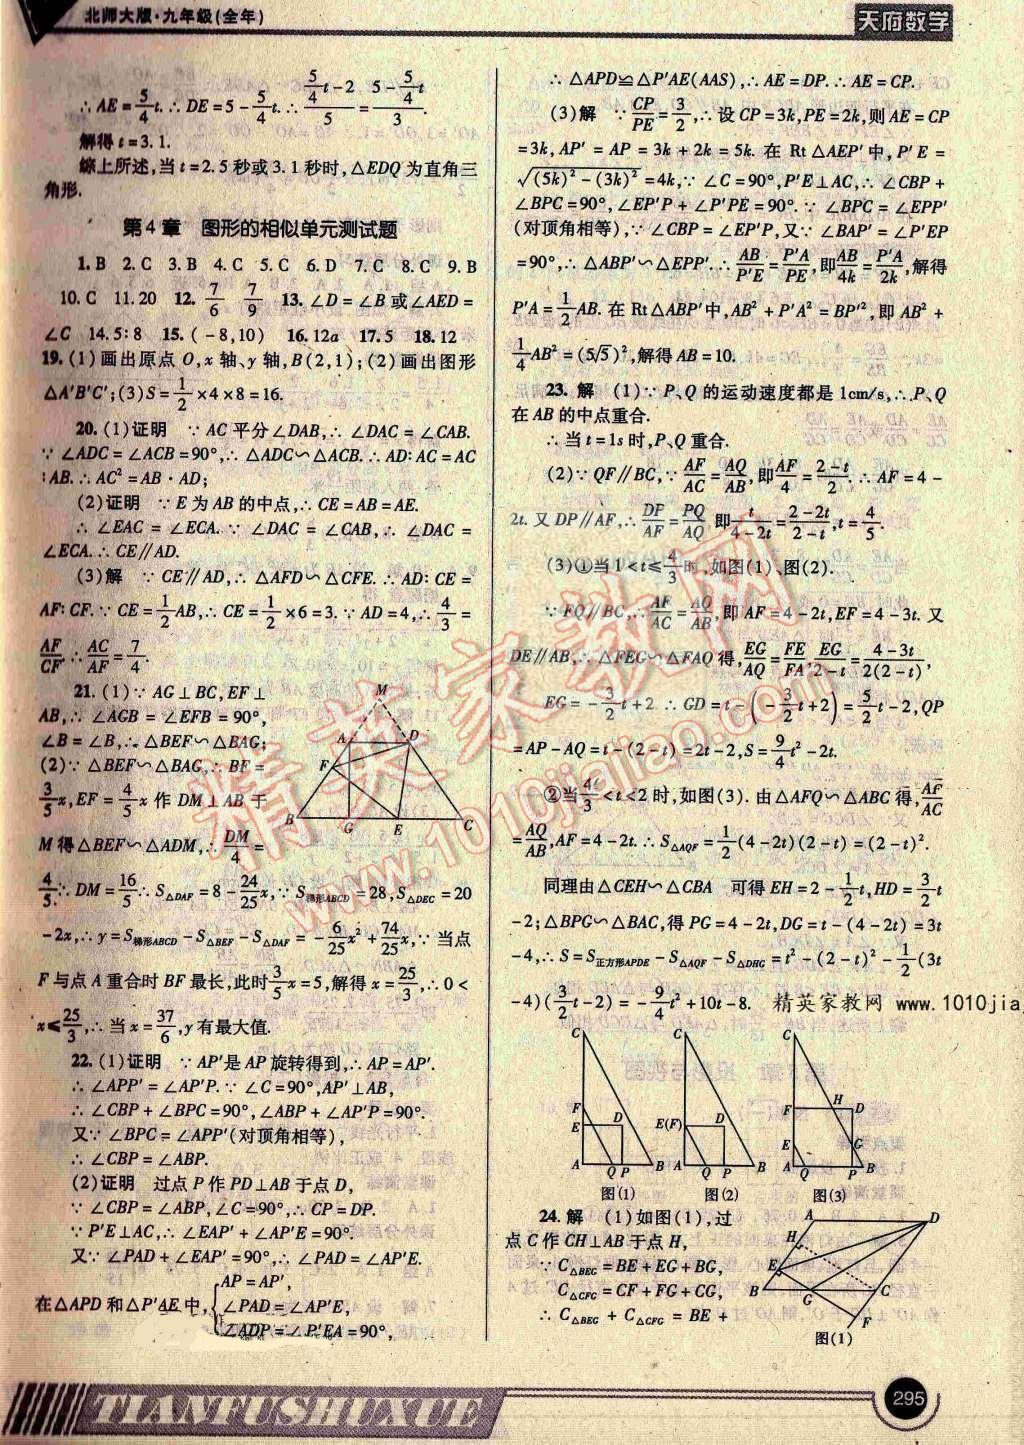 北师大版·九年级(全年)
天府数学
∴ AE=5/4t.∴ DE=5-5/4t.∴ (5/4t-2)/5=(5-5/4t)/3.
解得 t=3.1.
综上所述,当 t=2.5秒或3.1秒时,△EDQ为直角三
角形.
第4章 图形的相似单元测试题
1.B 2.C 3.B 4.C 5.C 6.D 7.C 8.C 9.B
10.C 11.20 12.7/6 7/9 13.∠D=∠B或∠AED=
∠C 14.5:8 15.(-8,10) 16.12a 17.5 18.12
19.(1)画出原点O,x轴、y轴,B(2,1);(2)画出图形
△A′B′C′;(3)S=1/2×4×8=16.
20.(1)证明 ∵ AC平分∠DAB,∴ ∠DAC=∠CAB.
∵ ∠ADC=∠ACB=90°,∴ △ADC∽△ACB.∴ AD:AC=AC
:AB.∴ AC²=AB·AD;
(2)证明 ∵ E为AB的中点,∴ CE=AB=AE.
∴ ∠EAC=∠ECA.∵ ∠DAC=∠CAB,∴ ∠DAC=
∠ECA.∴ CE∥AD.
(3)解 ∵ CE∥AD,∴ △AFD∽△CFE.∴ AD:CE=
AF:CF.∵ CE=1/2AB,∴ CE=1/2×6=3.∵ AD=4,∴ 4/3=
AF/CF,∴ AC/AF=7/4.
21.(1)∵ AG⊥BC,EF⊥
AB,∴ ∠AGB=∠EFB=90°,
∠B=∠B,∴ △BEF∽△BAG;
(2)∵ △BEF∽△BAG,∴ BF=
3/5x,EF=4/5x 作DM⊥AB于
M得△BEF∽△ADM,∴ DM/4=
4/5.∴ DM=16/5∴ S△DAF=8-24/25x,∵ S梯形ABCD=28,S△DEC=20
-2x,∴ y=S梯形ABCD-S△BEF-S△DAF=-6/25x²+74/25x,∵ 当点
F与点A重合时BF最长,此时3/5x=5,解得x=25/3,∴ 0<
x≤25/3,∴ 当x=37/6,y有最大值.
22.(1)证明 ∵ AP′是AP旋转得到,∴ AP=AP′.
∴ ∠APP′=∠AP′P.∵ ∠C=90°,AP′⊥AB,
∴ ∠CBP+∠BPC=90°,∠ABP+∠AP′P=90°.
又∵ ∠BPC=∠APP′(对顶角相等),
∴ ∠CBP=∠ABP.
(2)证明 过点P作PD⊥AB于点D,
∵ ∠CBP=∠ABP,∠C=90°,∴ CP=DP.
∵ P′E⊥AC,∴ ∠EAP′+∠AP′E=90°.
又∵ ∠PAD+∠EAP′=90°,∴ ∠PAD=∠AP′E.
在△APD和△P′AE中,{AP=AP′,
∠PAD=∠AP′E,
∠ADP=∠P′EA=90°,
M
A D
F
B G E C
∴ △APD≌△P′AE(AAS),∴ AE=DP.∴ AE=CP.
(3)解 ∵ CP/PE=3/2,∴ 设CP=3k,PE=2k,则AE=CP
=3k,AP′=AP=3k+2k=5k.在Rt△AEP′中,P′E=
√((5k)²-(3k)²)=4k,∵ ∠C=90°,P′E⊥AC,∴ ∠CBP+
∠BPC=90°,∠EP′P+∠P′PE=90°.∵ ∠BPC=∠EPP′
(对顶角相等),∴ ∠CBP=∠EP′P,又∵ ∠BAP′=∠P′EP
=90°,∴ △ABP′∽△EPP′.∴ AB/P′E=P′A/PE,即AB/4k=P′A/2k,解得
P′A=1/2AB.在Rt△ABP′中,AB²+P′A²=BP′²,即AB²+
1/4AB²=(5√5)²,解得AB=10.
23.解 (1)∵ P、Q的运动速度都是1cm/s,∴ P、Q
在AB的中点重合.
∴ 当t=1s时,P、Q重合.
(2)∵ QF∥BC,∵ AF/AC=AQ/AB,即AF/4=(2-t)/2.∴ AF=4-
2t.又DP∥AF,∴ DP/AF=PQ/AQ 即t/(4-2t)=(2-2t)/(2-t),t=4/5.
(3)①当1<t≤4/3时,如图(1)、图(2).
∵ FQ∥BC,∴ AF/AC=AQ/AB,即AF=4-2t,EF=4-3t.又
DE∥AB,∴ △FEG∽△FAQ得,EG/AQ=FE/FA,EG/(2-t)=(4-3t)/(2(2-t)),
EG=-3/2t+2 ∴ GD=t-(-3/2t+2)=5/2t-2,QP
=AP-AQ=t-(2-t)=2t-2,S=9/4t²-2t.
②当4/3<t<2时,如图(3).由△AFQ∽△ABC得,AF/AC
=AQ/AB,AF=4-2t.∴ S△AQF=1/2(4-2t)(2-t)=(2-t)².
同理由△CEH∽△CBA 可得EH=2-1/2t,HD=3/2t
-2;△BPG∽△BAC,得PG=4-2t,DG=t-(4-2t)=3t
-4,∴ S=S正方形APDE-S△AQF-S△DHG=t²-(2-t)²-1/2(3t
-4)(3/2t-2)=-9/4t²+10t-8.
精英家教网 www.1010jia
C C C
F D E D A Q P B 图(1)
E(F) D A Q P B 图(2)
F H D E G A Q P B 图(3)
24.解 (1)如图(1),过
点C作CH⊥AB于点H,
∵ C△BEG=BE+EG+BG,
C△CFG=CF+FG+CG,
∴ C△BEG+C△CFG=BE+
A D H E B G C F
图(1)
精英家教网
www.1010jiajiao.com
TIANFUSHUXUE
295